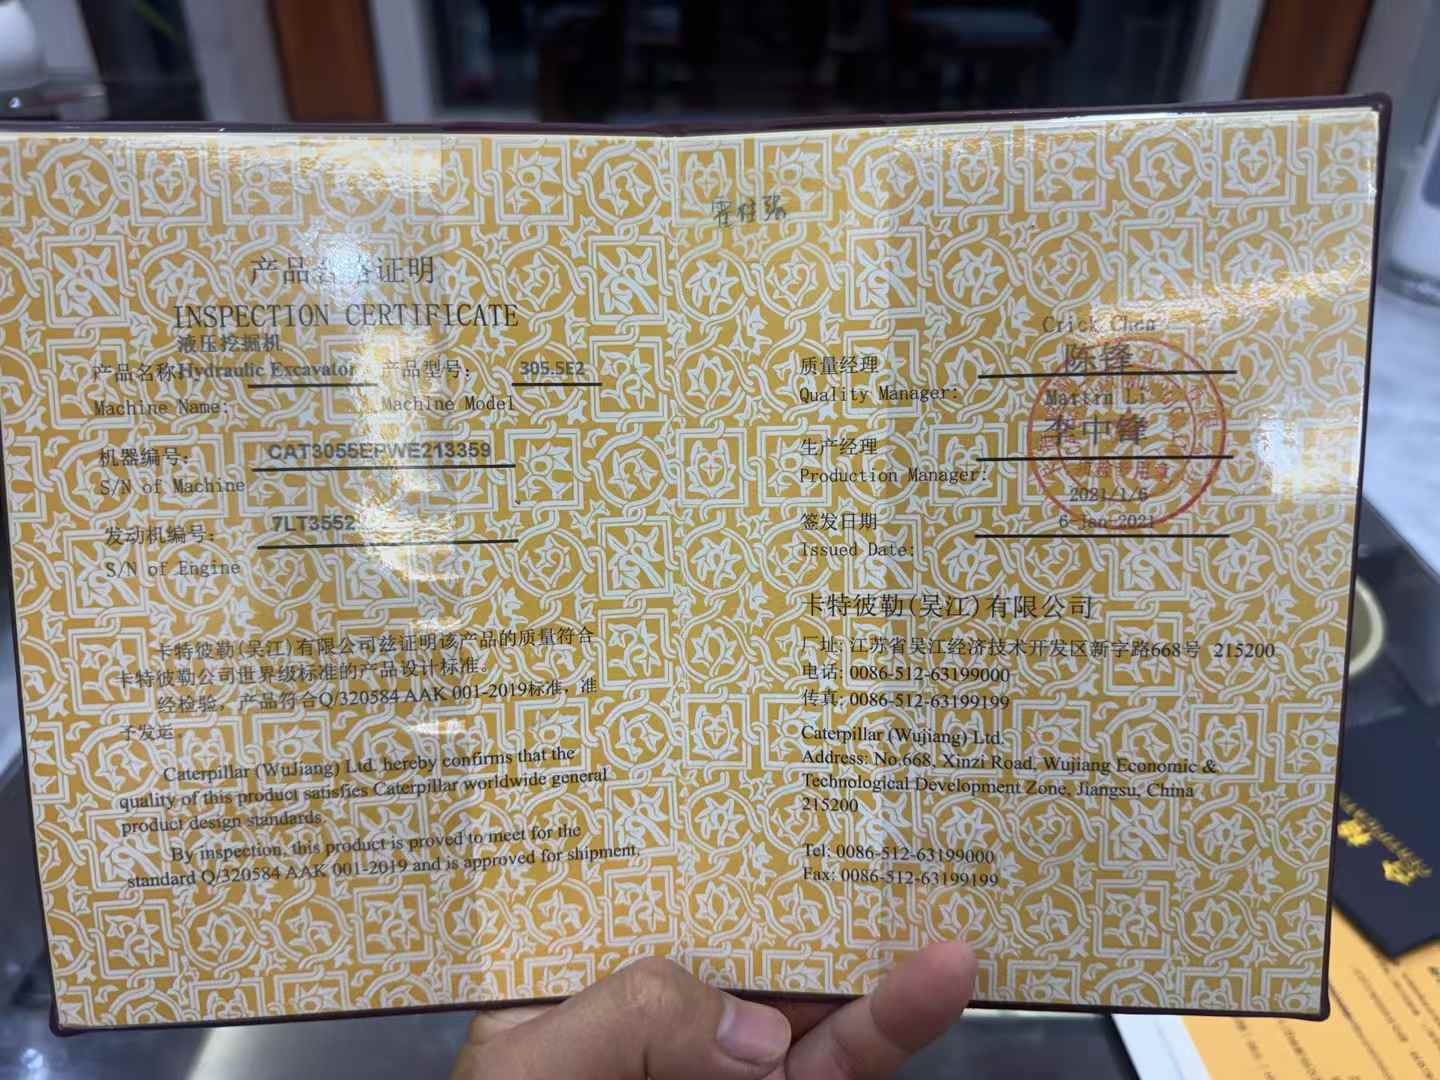 产品合格证明
INSPECTION CERTIFICATE
液压挖掘机
产品名称 Hydraulic Excavator 产品型号: 305.5E2
Machine Name: Machine Model
机器编号: CAT3055EPWE213359
S/N of Machine
发动机编号: 7LT3552
S/N of Engine
卡特彼勒(吴江)有限公司兹证明该产品的质量符合
卡特彼勒公司世界级标准的产品设计标准。
经检验，产品符合Q/320584 AAK 001-2019标准，准
予发运。
Caterpillar (WuJiang) Ltd. hereby confirms that the
quality of this product satisfies Caterpillar worldwide general
product design standards.
By inspection, this product is proved to meet for the
standard Q/320584 AAK 001-2019 and is approved for shipment.
Crick Chen
质量经理 陈锋
Quality Manager: Martin Li
生产经理 李中锋
Production Manager:
2021/1/6
签发日期 6-Jan-2021
Issued Date:
卡特彼勒(吴江)有限公司
厂址: 江苏省吴江经济技术开发区新字路668号 215200
电话: 0086-512-63199000
传真: 0086-512-63199199
Caterpillar (Wujiang) Ltd.
Address: No.668, Xinzi Road, Wujiang Economic &
Technological Development Zone, Jiangsu, China
215200
Tel: 0086-512-63199000
Fax: 0086-512-63199199